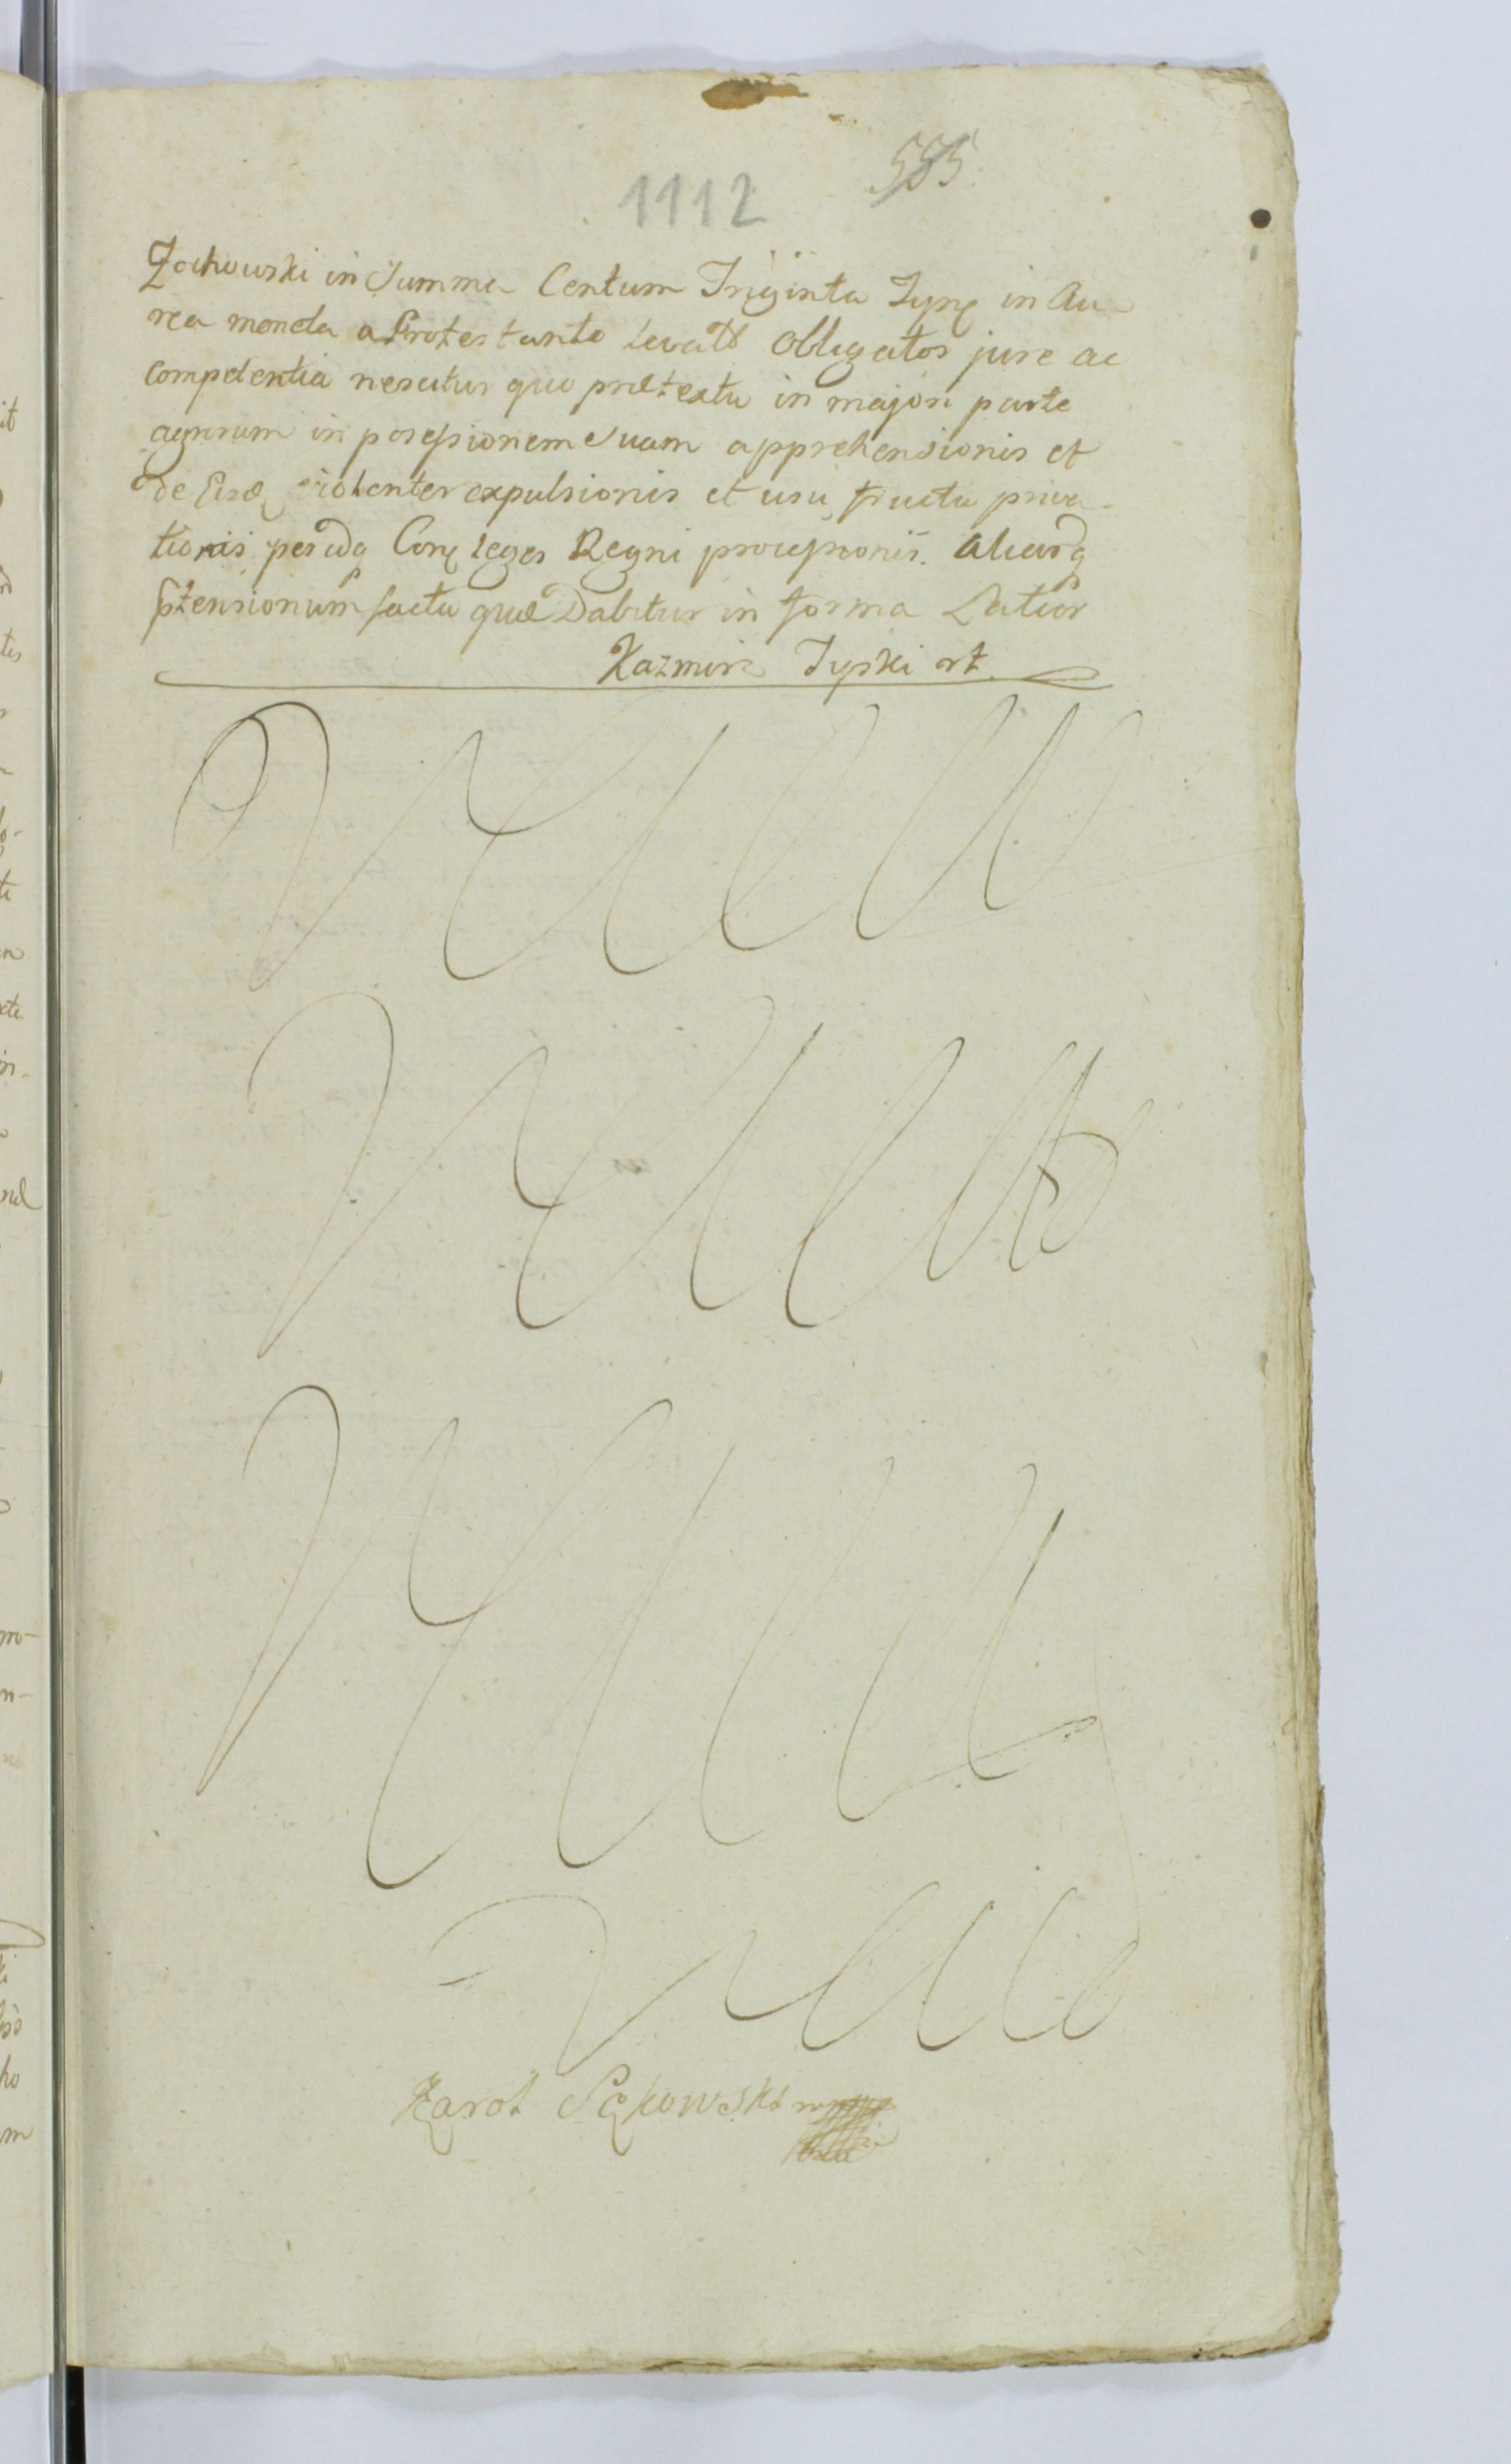 555
1112
Żochowski in Summa Centum Triginta Tynf in Au-
rea moneta a Protestante Levatt obligatos jure ac
competentia nescitur quo prætextu in majori parte
agrorum in posessionem Suam apprehensionis et
de Eisdq violenter expulsionis et usu fructu priva-
tionis, per idq Conq leges Regni processionis. Aliarq
Ptensionum factu quæ Dabitur in forma Latior
Kazmirz Typki
Karol Sękowski